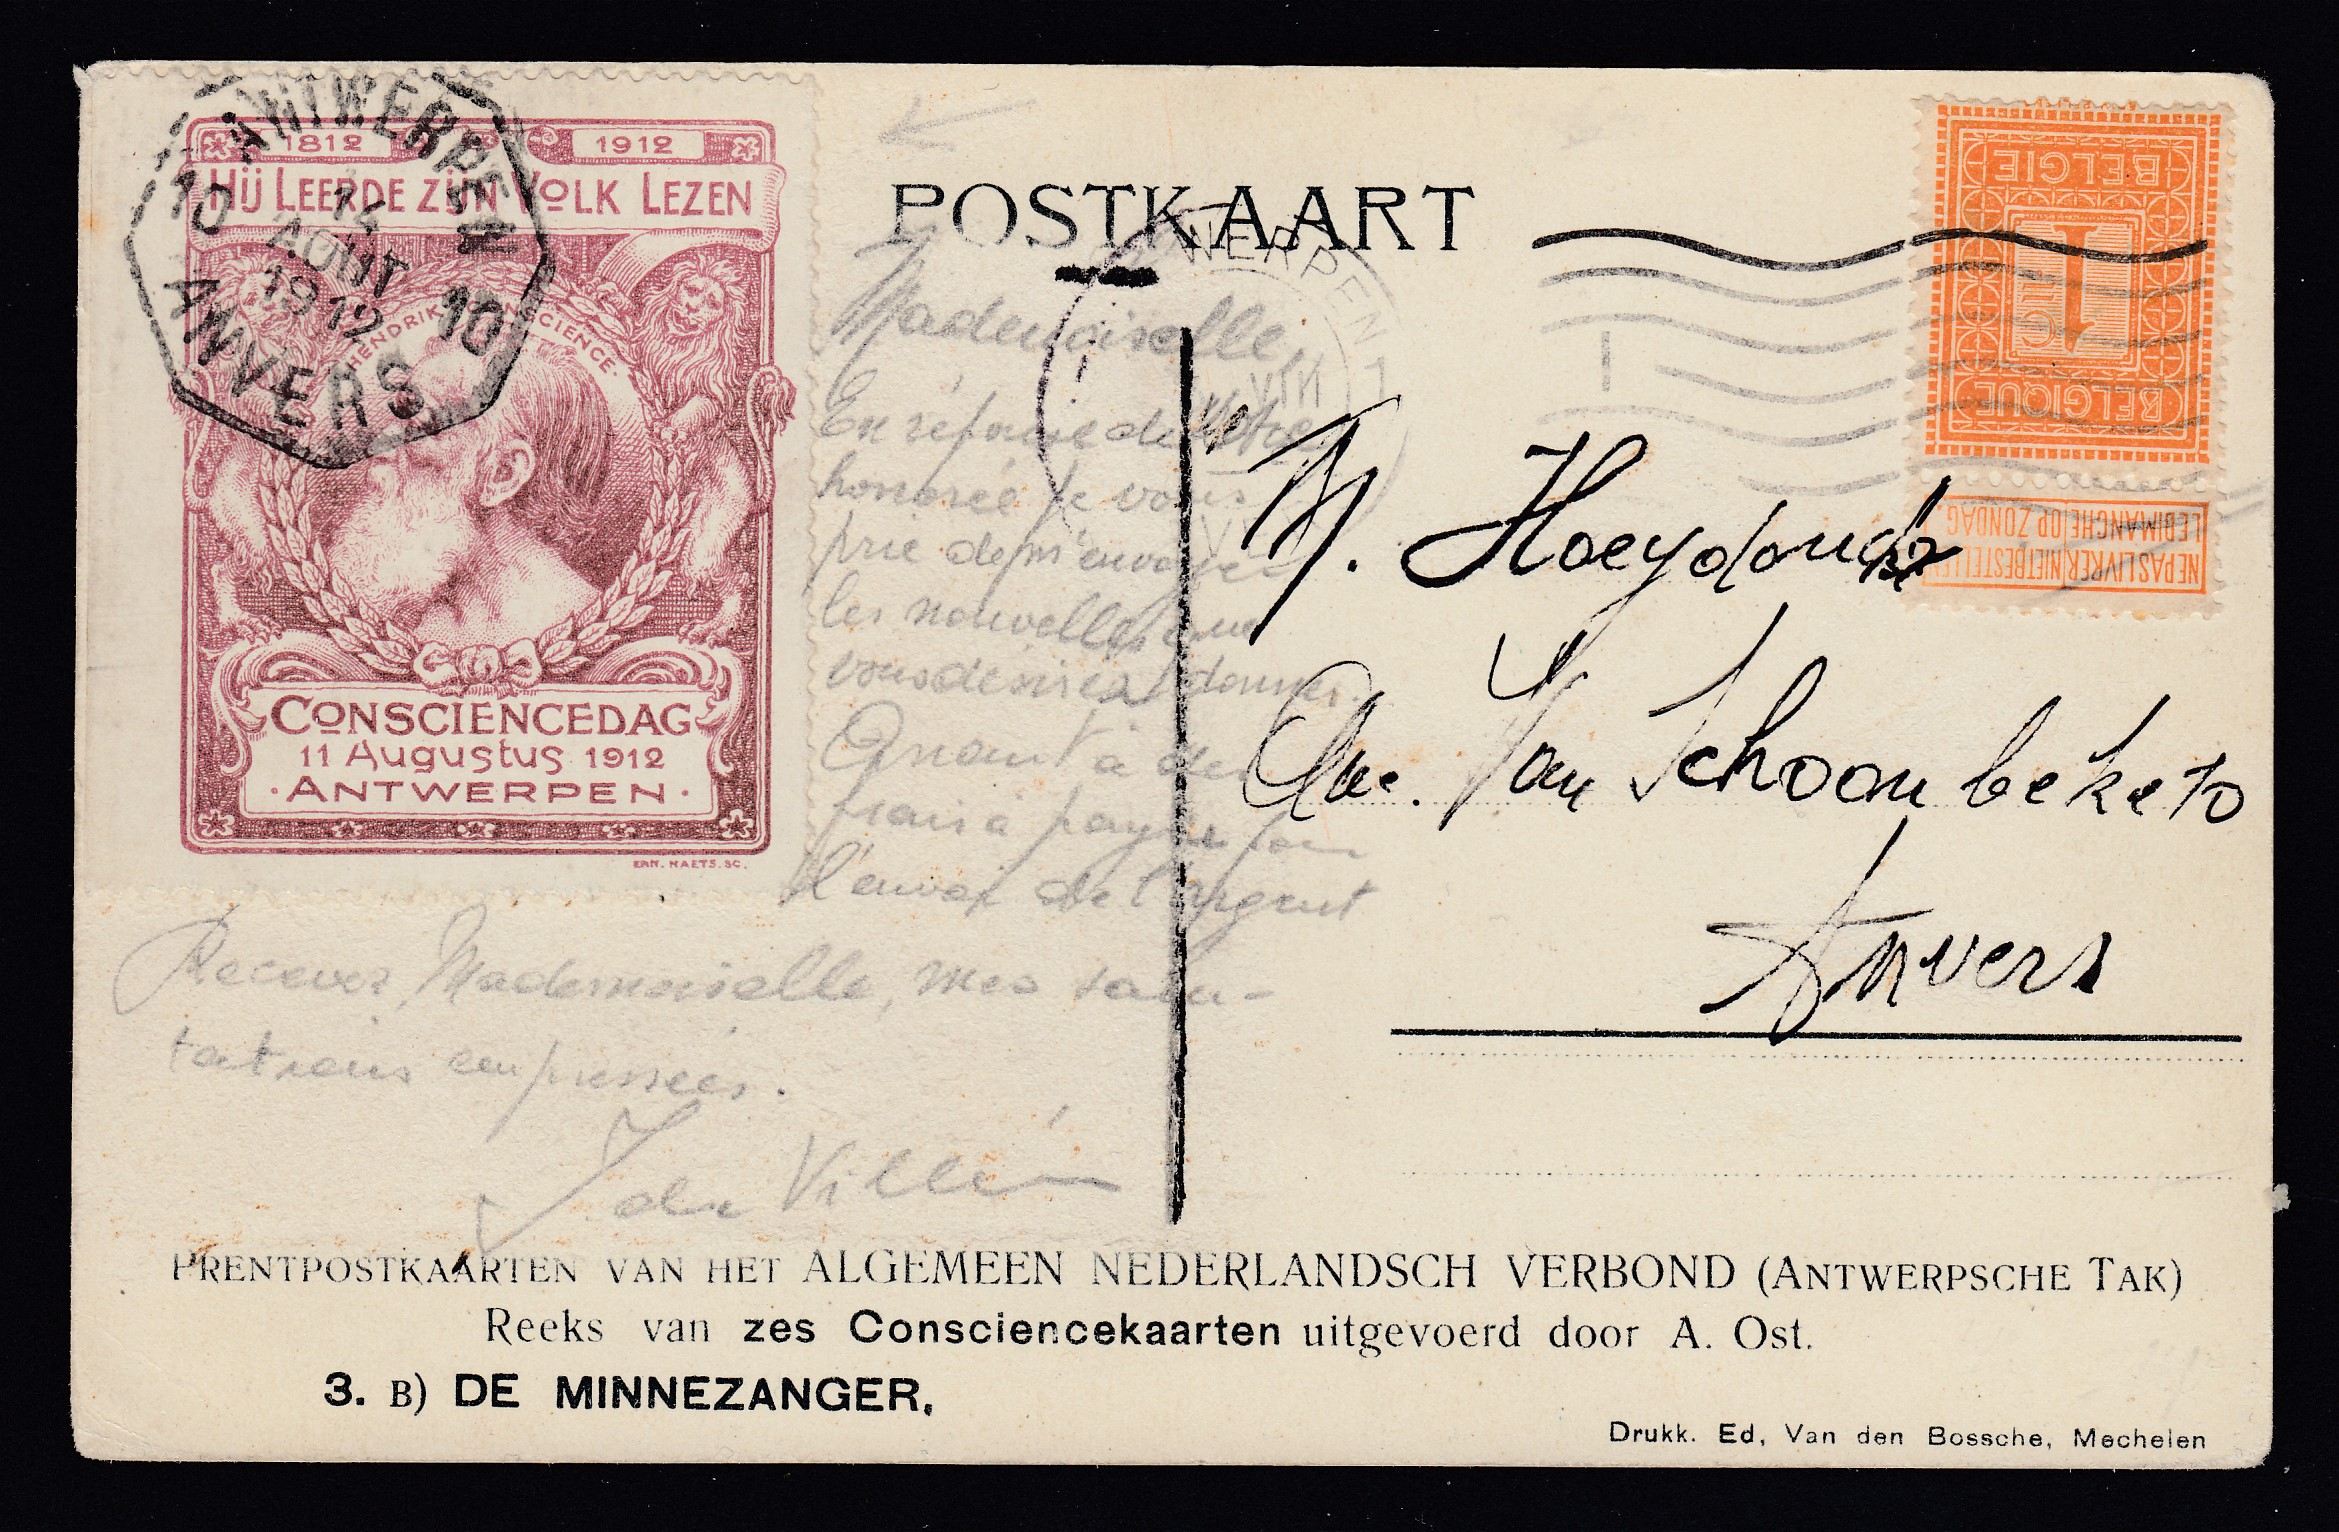 1812 1912
HIJ LEERDE ZIJN VOLK LEZEN
HENDRIK CONSCIENCE.
CONSCIENCEDAG
11 AUGUSTUS 1912
·ANTWERPEN·
ERN. NAETS. SC.
ANTWERPEN
10 10
14
AOUT
1912
ANVERS
POSTKAART
WERPEN 1
BELGIE
1
BELGIQUE
NE PAS LIVRER NIET BESTELLEN
LE DIMANCHE OP ZONDAG.
Mademoiselle,
En réponse de Votre
honorée je vous
prie de m'envoyer
les nouvelles que
vous désirez donner.
Quant à des
frais à payer pour
l'envoi de l'argent
Recevez, Mademoiselle, mes salu-
tations empressées.
M. Hoeydonckx
Rue Van Schoonbeke 10
Anvers
PRENTPOSTKAARTEN VAN HET ALGEMEEN NEDERLANDSCH VERBOND (ANTWERPSCHE TAK)
Reeks van zes Consciencekaarten uitgevoerd door A. Ost.
3. B) DE MINNEZANGER.
Drukk. Ed, Van den Bossche, Mechelen